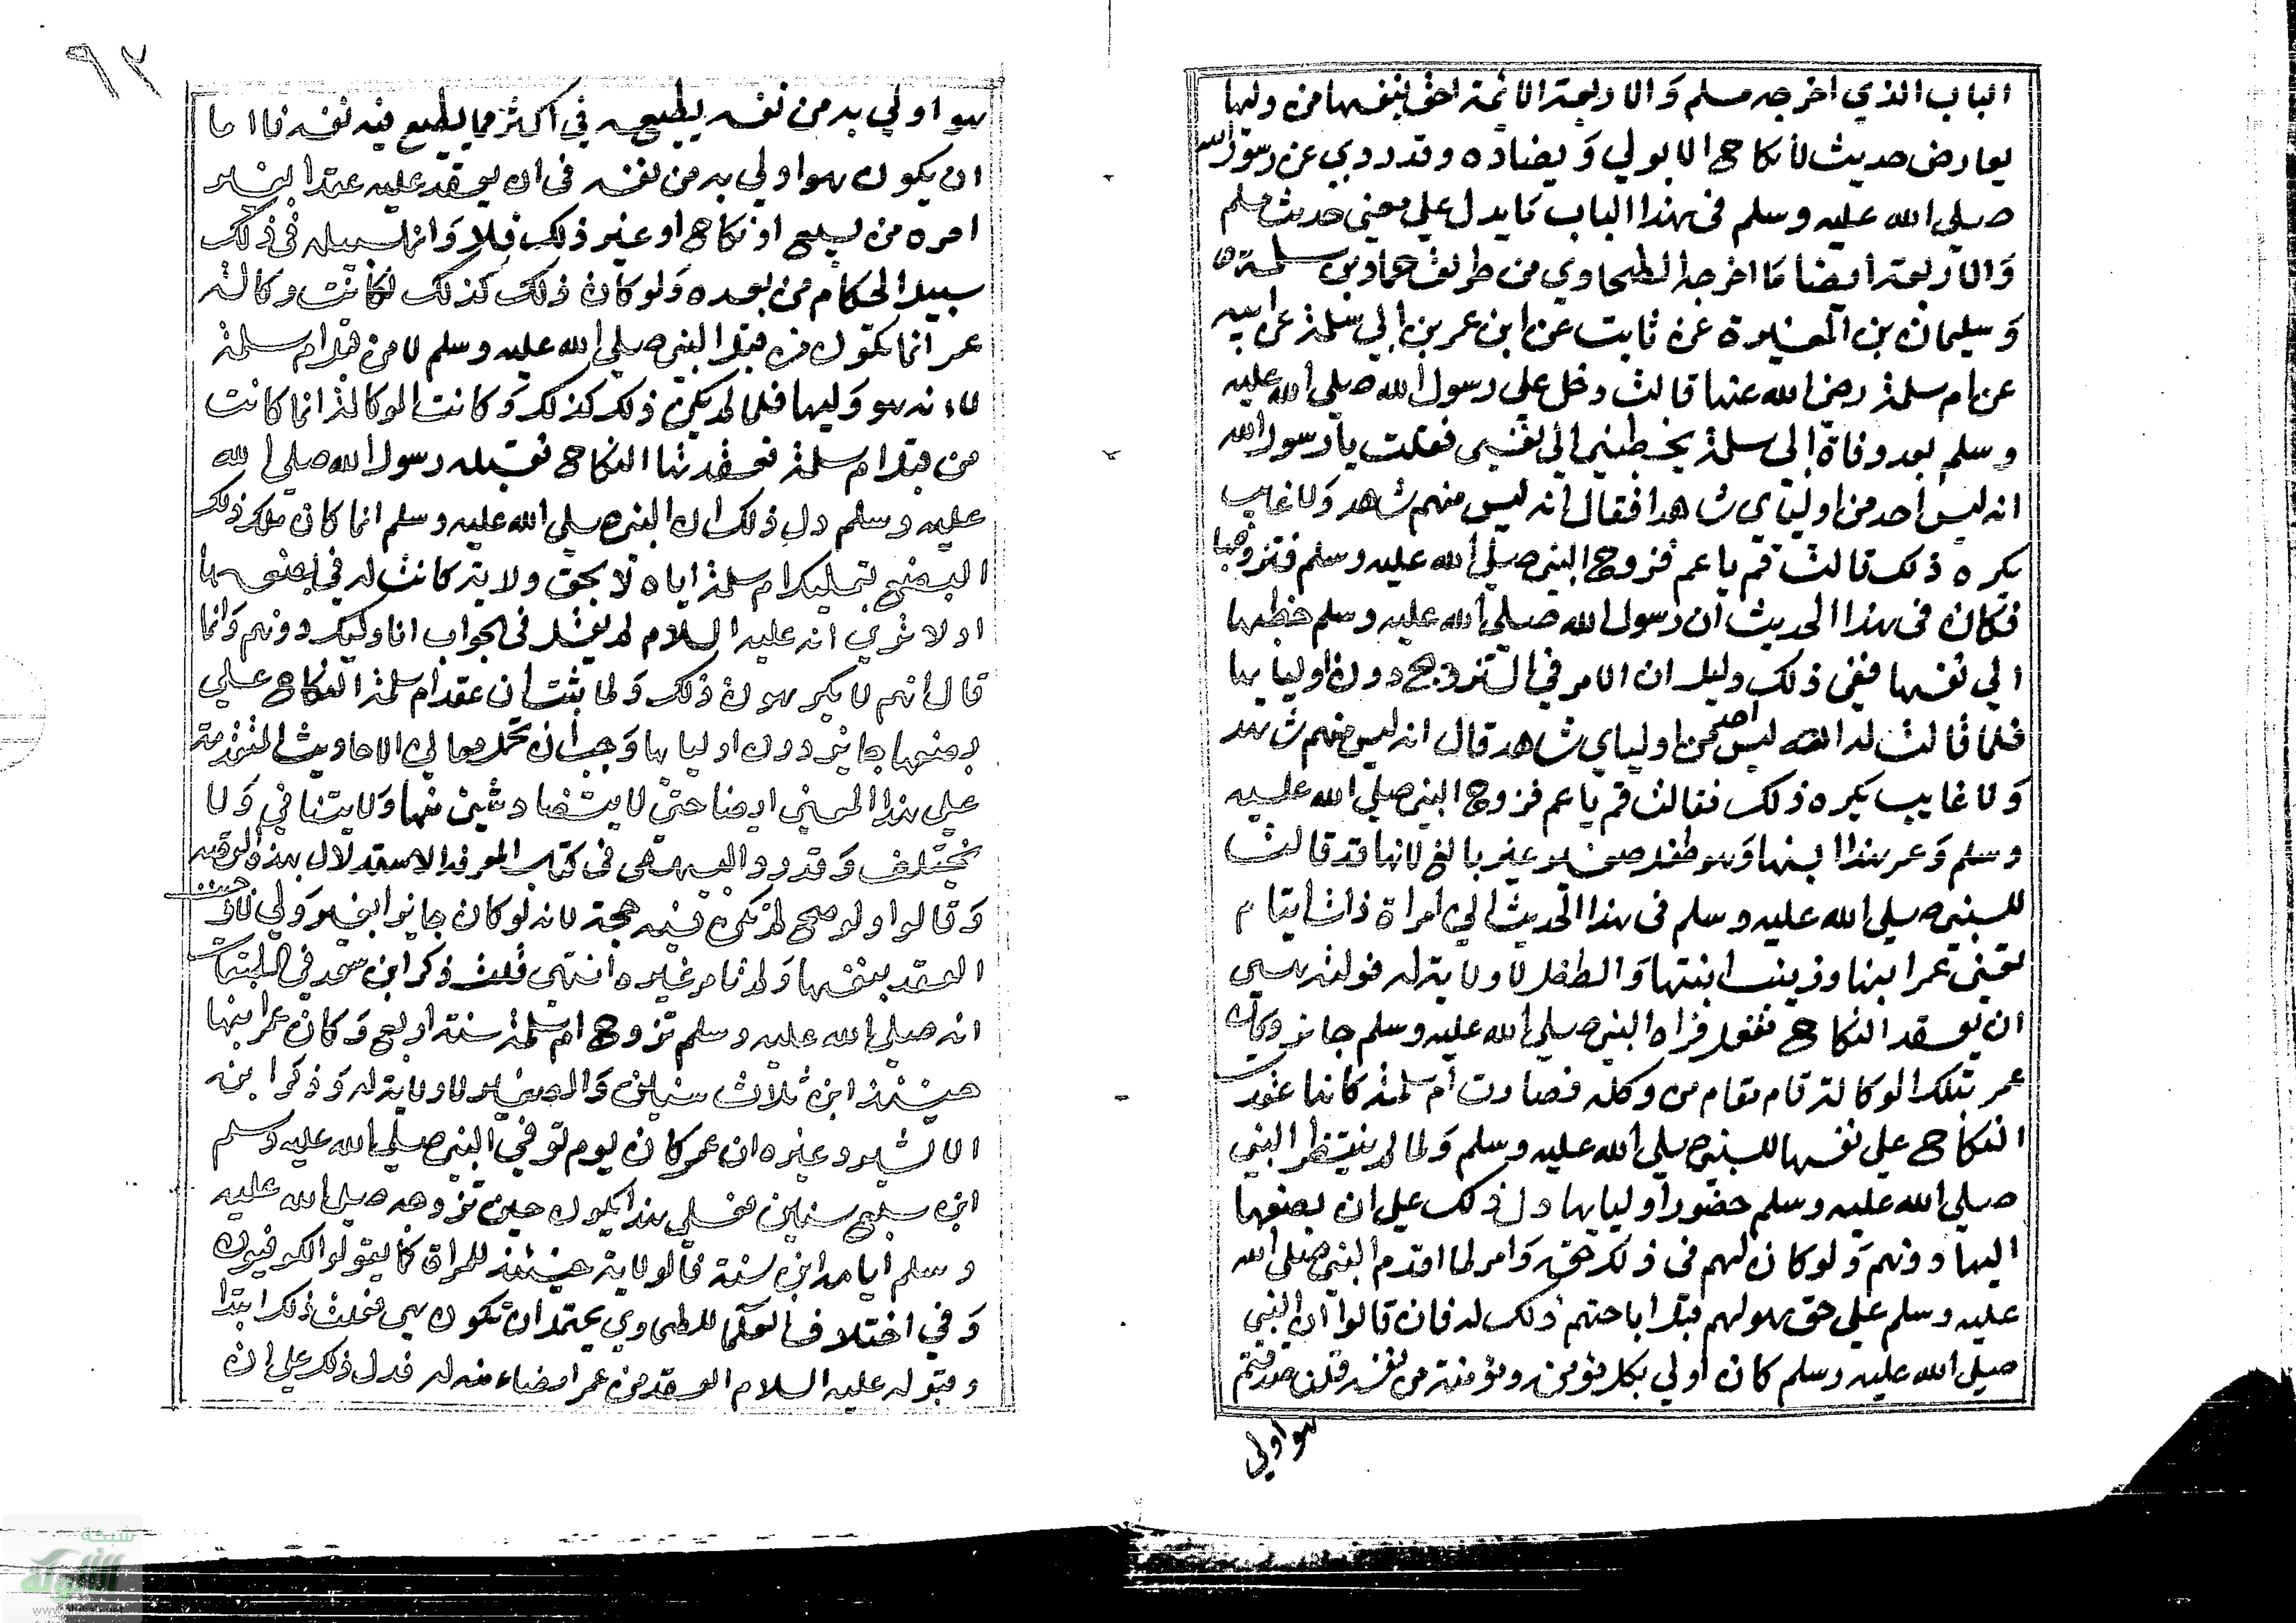 الباب الذي اخرجه مسلم وَالاربعة الائمة احق بنفسها من وليها
يعارض حديث لا نكاح الا بولي وَيضاده وقد روي عن رسول الله
صلي الله عليه وسلم في هذا الباب مَا يدل علي معني حديث مسلم
وَالاربعة ايضا مَا اخرجه الطحاوي من طريق حماد بن سلمة
وَسليمان بن المغيرة عن ثابت عن ابن عمر بن ابي سلمة عن ابيه
عن ام سلمة رضي الله عنها قالت دخل علي رسول الله صلي الله عليه
وسلم بعد وفاة ابي سلمة يخطبني الي نفسي فقلت يا رسول الله
انه ليس احد من اوليَاي شاهدا فقال انه ليس منهم شاهد وَلا غايب
يكره ذلك قالت قم يا عمر فزوج النبي صلي الله عليه وسلم فتزوجها
فكان في هذا الحديث ان رسول الله صلي الله عليه وسلم خطبها
الي نفسها ففي ذلك دليل ان الامر في التزويج دون اوليايها
فلما قالت له ليس احد من اولياي شاهد قال انه ليس منهم شاهد
وَلا غايب يكره ذلك فقالت قم يا عمر فزوج النبي صلي الله عليه
وسلم وَعمر هذا ابنها وَهو طفل صغير غير بالغ لانها قد قالت
للنبي صلي الله عليه وسلم في هذا الحديث اني امراة ذات ايتام
تعني عمر ابنها وزينب ابنتها وَالطفل لا ولاية له فولته هي
ان يعقد النكاح ففعل فراه النبي صلي الله عليه وسلم جايز وكان
عمر بتلك الوكالة قام مقام من وكله فصارت ام سلمة كانها عقدت
النكاح علي نفسها للنبي صلي الله عليه وسلم وَلما لم ينتظر النبي
صلي الله عليه وسلم حضور اوليايها دل ذلك علي ان بضعها
اليها دونهم وَلو كان لهم في ذلك حق وَامر لما اقدم النبي صلي الله
عليه وسلم علي حق هو لهم قبل اباحتهم ذلك له فان قالوا ان النبي
صلي الله عليه وسلم كان اولي بكل مؤمن ومؤمنة من نفسه قلت صدقتم
هو اولي
٩٢
هو اولي به من نفسه يطيعه في اكثر مما يطيع فيه نفسه فاما
ان يكون هو اولي به من نفسه في ان يعقد عليه عقدا بغير
امره من بيع او نكاح او غير ذلك فلا وَانما سبيله في ذلك
سبيل الحكام من بعده وَلو كان ذلك كذلك لكانت وكالة
عمر انما تكون من قبل النبي صلي الله عليه وسلم لا من قبل ام سلمة
لانه هو وَليها فلما لم يكن ذلك كذلك وَكانت الوكالة انما كانت
من قبل ام سلمة فعقد بها النكاح فقبله رسول الله صلي الله
عليه وسلم دل ذلك ان النبي صلي الله عليه وسلم انما كان ملك ذلك
البضع بتمليك ام سلمة اياه لا بحق ولاية كانت له في بضعها
اولا تري انه عليه السلام لم يقل في الجواب انا وليك دونهم وَانما
قال انهم لا يكرهون ذلك وَلما ثبت ان عقد ام سلمة النكاح علي
بضعها جايز دون اوليايها وَجب ان تحمل معاني الاحاديث المتقدمة
علي هذا المعني ايضا حتي لا يتضاد شيئ منها وَلا يتنافي وَلا
يختلف وَقد رد البيهقي في كتاب المعرفة الاستدلال بهذه القصه
وَقالوا ولو صح لم يكن فيه حجة لانه لو كان جايزا بغير وَلي لاوجبت
العقد بنفسها وَلم تامر غيره انتهي قلت ذكر ابن سعد في الطبقات
انه صلي الله عليه وسلم تزوج ام سلمة سنة اربع وَكان عمر ابنها
حينئذ ابن ثلاث سنين وَالصغير لا ولاية له وَذكر ابن
الاثير وغيره ان عمر كان يوم توفي النبي صلي الله عليه وسلم
ابن سبع سنين فعلي هذا يكون حين تزوجه صلي الله عليه
وسلم اياها ابن سنة فالولاية حينئذ للمراة كما يقول الكوفيون
وَفي اختلاف العلما للطحاوي يحتمل ان تكون هي فعلت ذلك ابتدا
وقبوله عليه السلام العقد من عمر امضاء منه له فدل ذلك علي ان